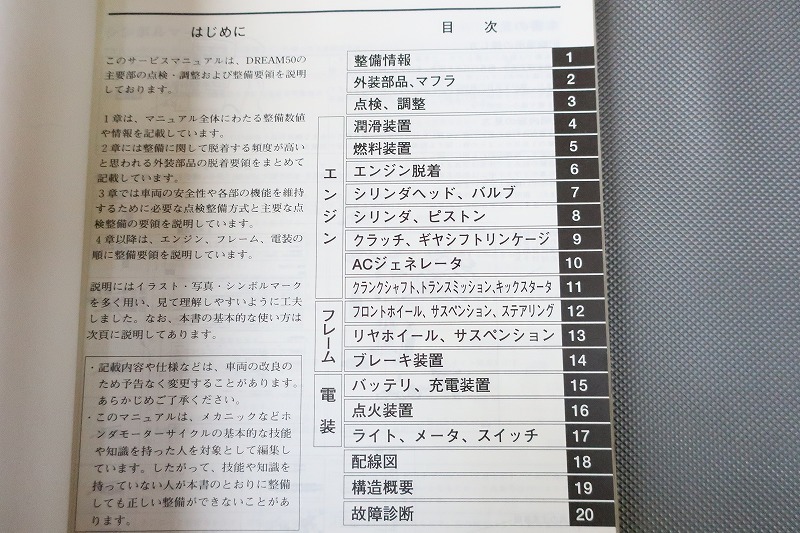 はじめに
このサービスマニュアルは、DREAM50の
主要部の点検・調整および整備要領を説明
しております。
1章は、マニュアル全体にわたる整備数値
や情報を記載しています。
2章には整備に関して脱着する頻度が高い
と思われる外装部品の脱着要領をまとめて
記載しています。
3章では車両の安全性や各部の機能を維持
するために必要な点検整備方式と主要な点
検整備の要領を説明しています。
4章以降は、エンジン、フレーム、電装の
順に整備要領を説明しています。
説明にはイラスト・写真・シンボルマーク
を多く用い、見て理解しやすいように工夫
しました。なお、本書の基本的な使い方は
次頁に説明してあります。
・記載内容や仕様などは、車両の改良の
ため予告なく変更することがあります。
あらかじめご了承ください。
・このマニュアルは、メカニックなどホ
ンダモーターサイクルの基本的な技能
や知識を持った人を対象として編集し
ています。したがって、技能や知識を
持っていない人が本書のとおりに整備
しても正しい整備ができないことがあ
ります。
目次
整備情報 1
外装部品、マフラ 2
点検、調整 3
エンジン
潤滑装置 4
燃料装置 5
エンジン脱着 6
シリンダヘッド、バルブ 7
シリンダ、ピストン 8
クラッチ、ギヤシフトリンケージ 9
ACジェネレータ 10
クランクシャフト、トランスミッション、キックスタータ 11
フレーム
フロントホイール、サスペンション、ステアリング 12
リヤホイール、サスペンション 13
ブレーキ装置 14
電装
バッテリ、充電装置 15
点火装置 16
ライト、メータ、スイッチ 17
配線図 18
構造概要 19
故障診断 20